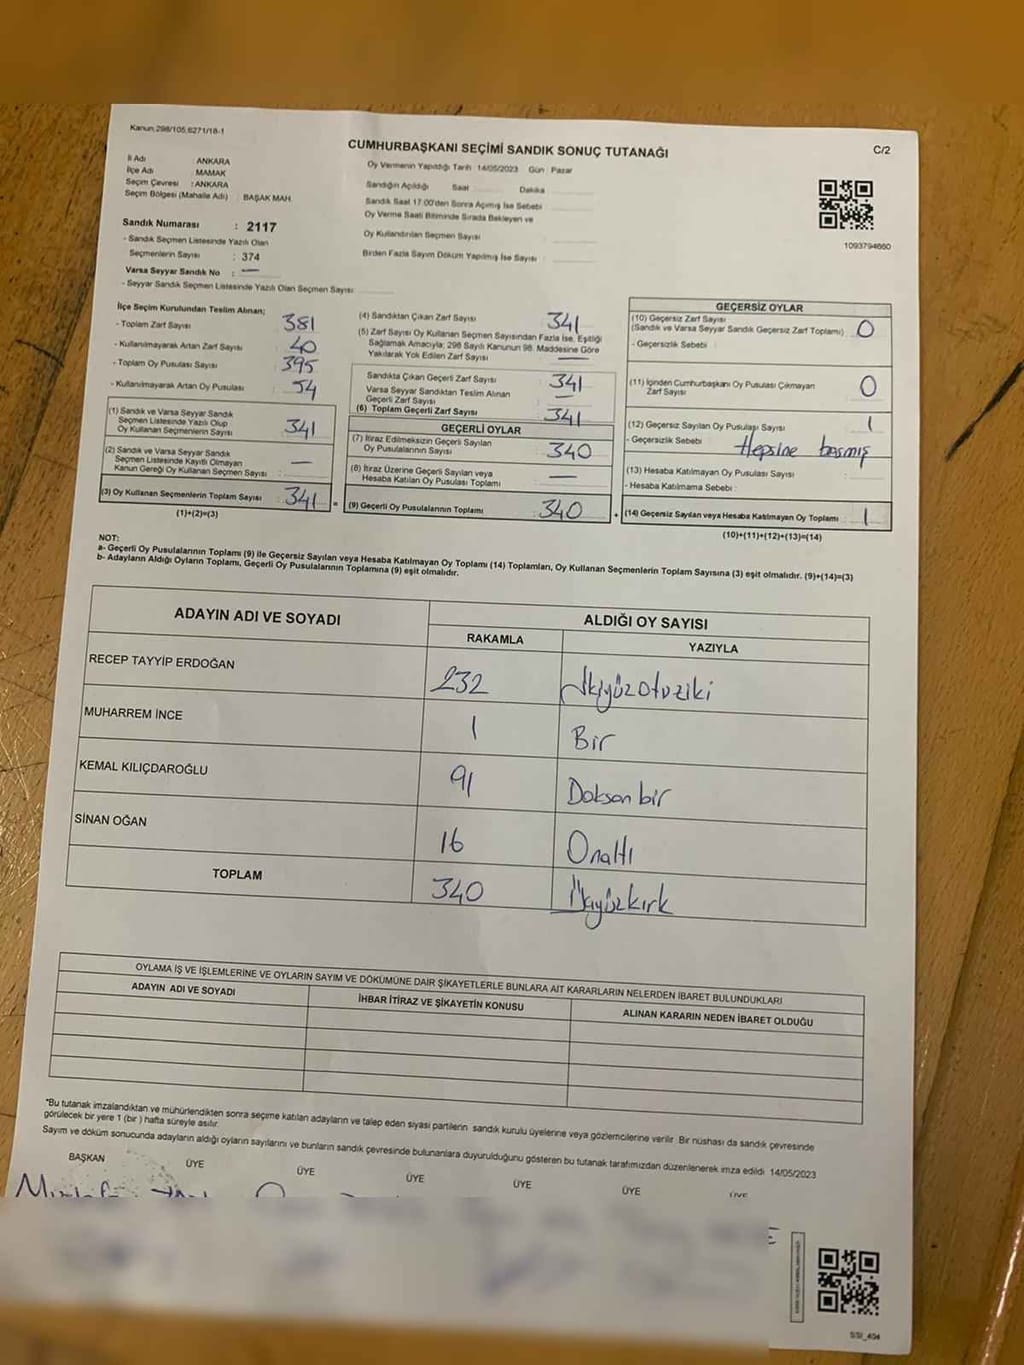 Kanun:298/105,6271/18-1
CUMHURBAŞKANI SEÇİMİ SANDIK SONUÇ TUTANAĞI
C/2
İl Adı : ANKARA
İlçe Adı : MAMAK
Seçim Çevresi : ANKARA
Seçim Bölgesi (Mahalle Adı) : BAŞAK MAH.
Oy Vermenin Yapıldığı Tarih 14/05/2023 Gün : Pazar
Sandığın Açıldığı Saat Dakika
Sandık Saat 17.00'den Sonra Açılmış İse Sebebi
Oy Verme Saati Bitiminde Sırada Bekleyen ve
Oy Kullandırılan Seçmen Sayısı
Birden Fazla Sayım Döküm Yapılmış İse Sayısı :
1093794660
Sandık Numarası : 2117
- Sandık Seçmen Listesinde Yazılı Olan
Seçmenlerin Sayısı : 374
Varsa Seyyar Sandık No : —
- Seyyar Sandık Seçmen Listesinde Yazılı Olan Seçmen Sayısı
İlçe Seçim Kurulundan Teslim Alınan;
- Toplam Zarf Sayısı 381
- Kullanılmayarak Artan Zarf Sayısı : 40
- Toplam Oy Pusulası Sayısı 395
- Kullanılmayarak Artan Oy Pusulası 54
(1) Sandık ve Varsa Seyyar Sandık
Seçmen Listesinde Yazılı Olup
Oy Kullanan Seçmenlerin Sayısı 341
(2) Sandık ve Varsa Seyyar Sandık
Seçmen Listesinde Kayıtlı Olmayan
Kanun Gereği Oy Kullanan Seçmen Sayısı : —
(3) Oy Kullanan Seçmenlerin Toplam Sayısı 341 =
(1)+(2)=(3)
(4) Sandıktan Çıkan Zarf Sayısı 341
(5) Zarf Sayısı Oy Kullanan Seçmen Sayısından Fazla İse, Eşitliği
Sağlamak Amacıyla; 298 Sayılı Kanunun 98. Maddesine Göre
Yakılarak Yok Edilen Zarf Sayısı —
Sandıkta Çıkan Geçerli Zarf Sayısı 341
Varsa Seyyar Sandıktan Teslim Alınan
Geçerli Zarf Sayısı —
(6) Toplam Geçerli Zarf Sayısı 341
GEÇERLİ OYLAR
(7) İtiraz Edilmeksizin Geçerli Sayılan
Oy Pusulalarının Sayısı 340
(8) İtiraz Üzerine Geçerli Sayılan veya
Hesaba Katılan Oy Pusulası Toplamı —
(9) Geçerli Oy Pusulalarının Toplamı 340 +
GEÇERSİZ OYLAR
(10) Geçersiz Zarf Sayısı
(Sandık ve Varsa Seyyar Sandık Geçersiz Zarf Toplamı) 0
- Geçersizlik Sebebi :
(11) İçinden Cumhurbaşkanı Oy Pusulası Çıkmayan
Zarf Sayısı 0
(12) Geçersiz Sayılan Oy Pusulası Sayısı 1
- Geçersizlik Sebebi : Hepsine basmış
(13) Hesaba Katılmayan Oy Pusulası Sayısı
- Hesaba Katılmama Sebebi :
(14) Geçersiz Sayılan veya Hesaba Katılmayan Oy Toplamı : 1
(10)+(11)+(12)+(13)=(14)
NOT:
a- Geçerli Oy Pusulalarının Toplamı (9) ile Geçersiz Sayılan veya Hesaba Katılmayan Oy Toplamı (14) Toplamları, Oy Kullanan Seçmenlerin Toplam Sayısına (3) eşit olmalıdır. (9)+(14)=(3)
b- Adayların Aldığı Oyların Toplamı, Geçerli Oy Pusulalarının Toplamına (9) eşit olmalıdır.
ADAYIN ADI VE SOYADI
ALDIĞI OY SAYISI
RAKAMLA YAZIYLA
RECEP TAYYİP ERDOĞAN 232 İkiyüzotuziki
MUHARREM İNCE 1 Bir
KEMAL KILIÇDAROĞLU 91 Doksanbir
SİNAN OĞAN 16 Onaltı
TOPLAM 340 Üçyüzkırk
OYLAMA İŞ VE İŞLEMLERİNE VE OYLARIN SAYIM VE DÖKÜMÜNE DAİR ŞİKAYETLERLE BUNLARA AİT KARARLARIN NELERDEN İBARET BULUNDUKLARI
ADAYIN ADI VE SOYADI İHBAR İTİRAZ VE ŞİKAYETİN KONUSU ALINAN KARARIN NEDEN İBARET OLDUĞU
*Bu tutanak imzalandıktan ve mühürlendikten sonra seçime katılan adayların ve talep eden siyasi partilerin sandık kurulu üyelerine veya gözlemcilerine verilir. Bir nüshası da sandık çevresinde
görülecek bir yere 1 (bir) hafta süreyle asılır.
Sayım ve döküm sonucunda adayların aldığı oyların sayılarını ve bunların sandık çevresinde bulunanlara duyurulduğunu gösteren bu tutanak tarafımızdan düzenlenerek imza edildi. 14/05/2023
BAŞKAN ÜYE ÜYE ÜYE ÜYE ÜYE ÜYE
SSI_404